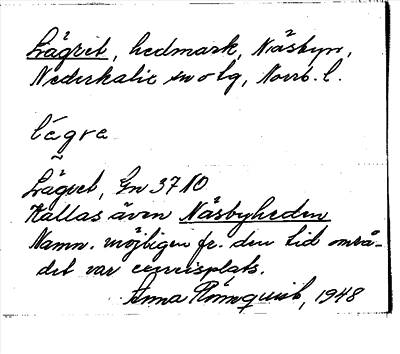 Lägret, hedmark, Näsbyn,
Nederkalix sn o tg, Norrb. l.
légre
~
Lägret, Gn 37 10
Kallas även Näsbyheden
Namn. möjligen fr. den tid områ-
det var exercisplats.
Anna Rönnquist, 1948